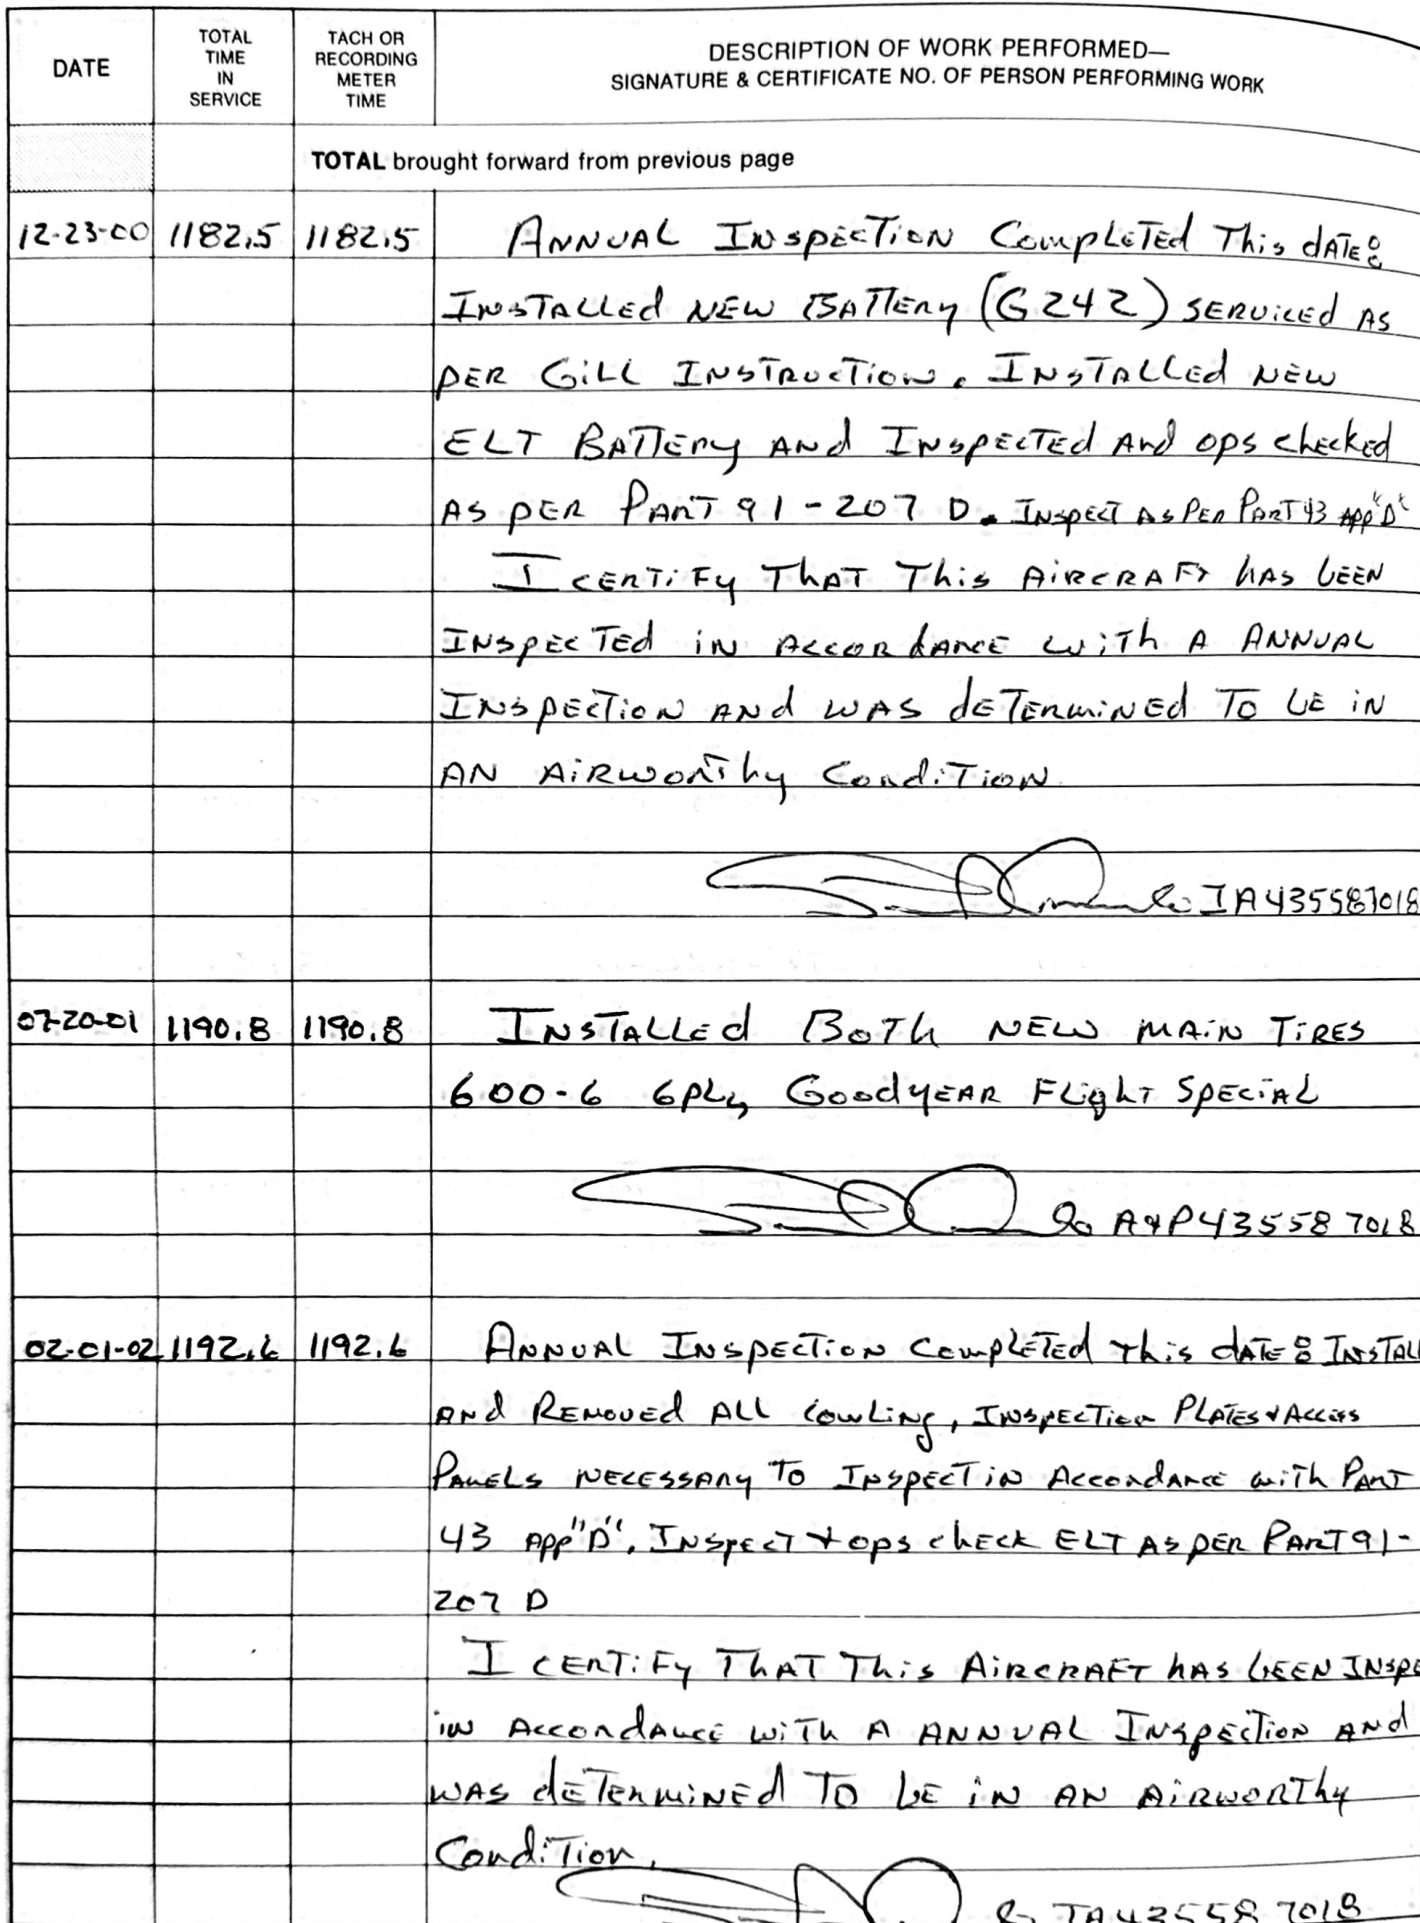 DATE
TOTAL
TIME
IN
SERVICE
TACH OR
RECORDING
METER
TIME
DESCRIPTION OF WORK PERFORMED—
SIGNATURE & CERTIFICATE NO. OF PERSON PERFORMING WORK
TOTAL brought forward from previous page
12-23-00 1182.5 1182.5 ANNUAL INSPECTION COMPLETED THIS DATE:
INSTALLED NEW BATTERY (G242) SERVICED AS
PER GILL INSTRUCTION. INSTALLED NEW
ELT BATTERY AND INSPECTED AND OPS CHECKED
AS PER PART 91-207 D. INSPECT AS PER PART 43 APP "D"
I CERTIFY THAT THIS AIRCRAFT HAS BEEN
INSPECTED IN ACCORDANCE WITH A ANNUAL
INSPECTION AND WAS DETERMINED TO BE IN
AN AIRWORTHY CONDITION
IA 435587018
07-20-01 1190.8 1190.8 INSTALLED BOTH NEW MAIN TIRES
600-6 6PLY GOODYEAR FLIGHT SPECIAL
A&P 435587018
02-01-02 1192.6 1192.6 ANNUAL INSPECTION COMPLETED THIS DATE: INSTALL
AND REMOVED ALL COWLING, INSPECTION PLATES & ACCESS
PANELS NECESSARY TO INSPECT IN ACCORDANCE WITH PART
43 APP "D". INSPECT & OPS CHECK ELT AS PER PART 91-
207 D
I CERTIFY THAT THIS AIRCRAFT HAS BEEN INSPE
IN ACCORDANCE WITH A ANNUAL INSPECTION AND
WAS DETERMINED TO BE IN AN AIRWORTHY
CONDITION.
IA 435587018